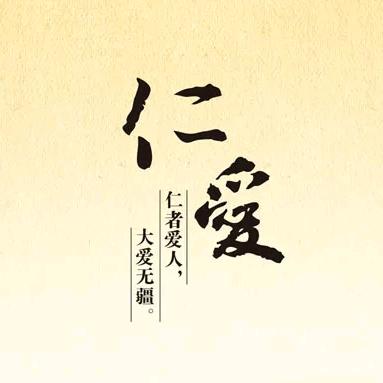 仁愛
仁者爱人，
大爱无疆。